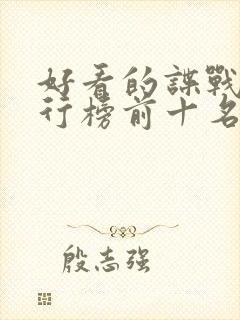 好看的諜戰
行榜前十名
殷志强